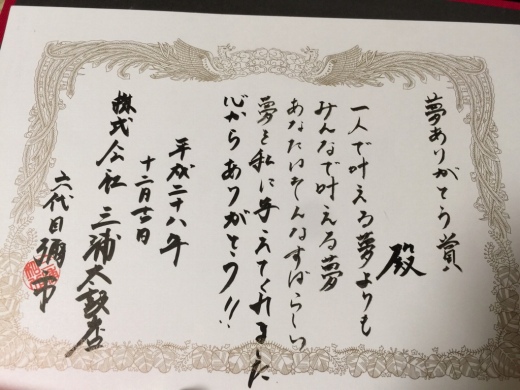 夢ありがとう賞
殿
一人で叶える夢よりも
みんなで叶える夢
あなたはそんなすばらしい
夢を私に与えてくれました
心からありがとう!!
平成二十八年
十二月吉日
株式会社 三浦太鼓店
六代目彌市